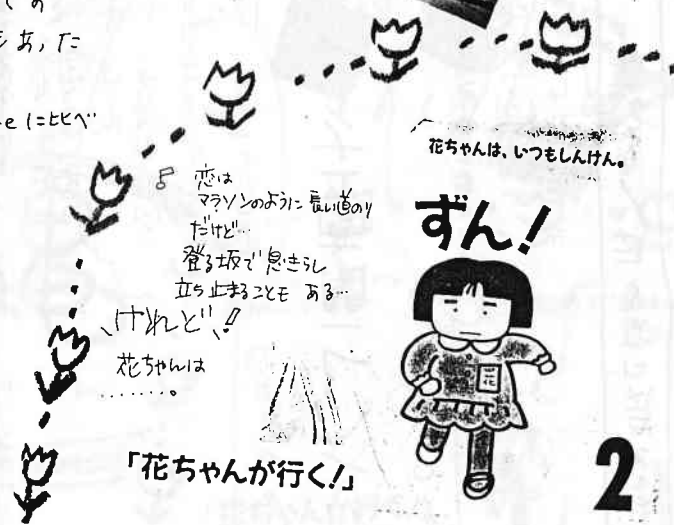 の
あった
eに比べ
花ちゃんは、いつもしんけん。
ずん!
♪ 恋は
マラソンのように 長い道のり
だけど…
登る坂で 息きらし
立ち止まることも ある…
けれど!
花ちゃんは
………。
花
「花ちゃんが行く!」
2